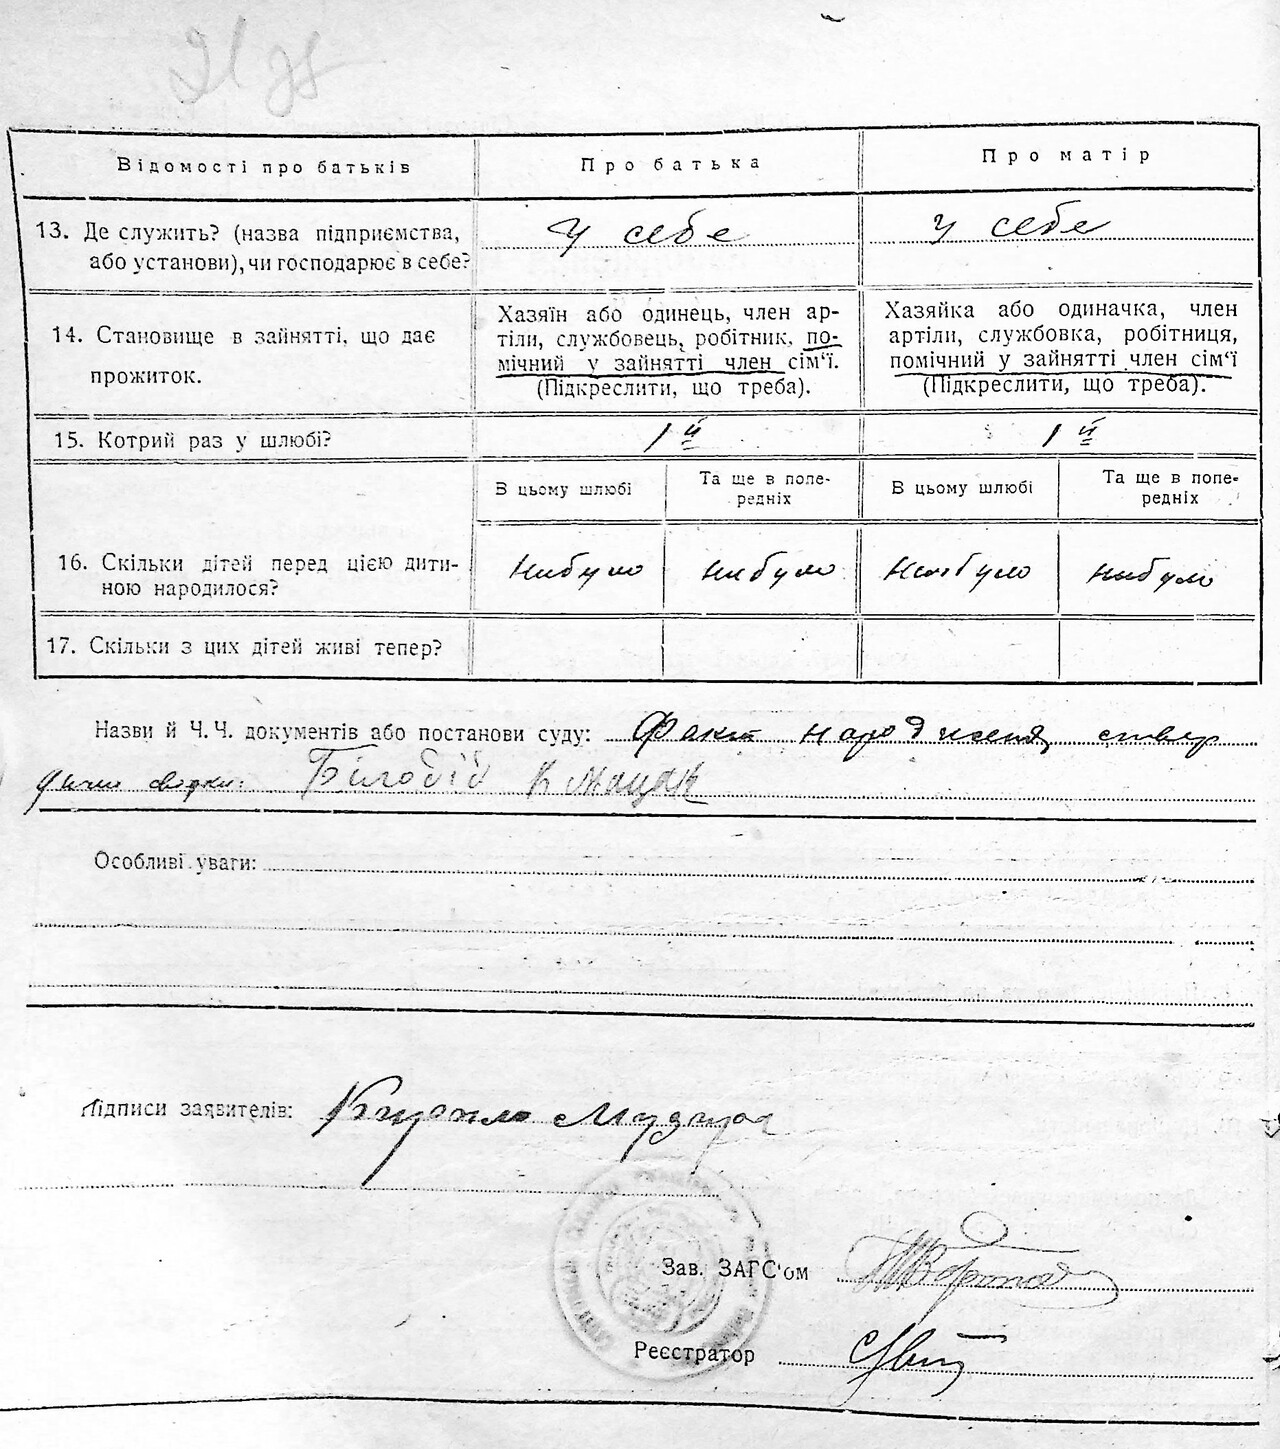 Відомості про батьків
Про батька
Про матір
13. Де служить? (назва підприємства,
або установи), чи господарює в себе?
У себе
У себе
14. Становище в зайнятті, що дає
прожиток.
Хазяїн або одинець, член ар-
тіли, службовець, робітник, по-
мічний у зайнятті член сім‘ї.
(Підкреслити, що треба).
Хазяйка або одиначка, член
артіли, службовка, робітниця,
помічний у зайнятті член сім‘ї
(Підкреслити, що треба).
15. Котрий раз у шлюбі?
1й
1й
В цьому шлюбі
Та ще в попе-
редніх
В цьому шлюбі
Та ще в попе-
редніх
16. Скільки дітей перед цією дити-
ною народилося?
небуло
небуло
небуло
небуло
17. Скільки з цих дітей живі тепер?
Назви й Ч. Ч. документів або постанови суду: Факт народженя ствер
дили свідки: Білобід
Особливі уваги:
Підписи заявителів: Кирило
Зав. ЗАГС‘ом
Реєстратор